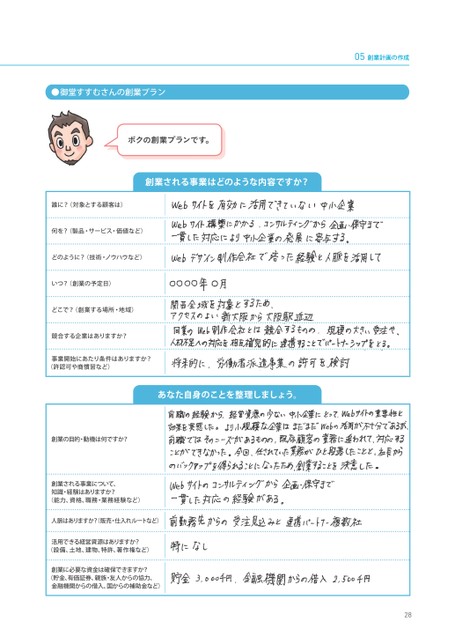 05 創業計画の作成
●御堂すすむさんの創業プラン
ボクの創業プランです。
創業される事業はどのような内容ですか？
誰に？（対象とする顧客は）
Webサイトを有効に活用できていない中小企業
何を？（製品・サービス・価値など）
Webサイト構築にかかる、コンサルティングから企画・保守まで
一貫した対応により中小企業の発展に寄与する。
どのように？（技術・ノウハウなど）
Webデザイン制作会社で培った経験と人脈を活用して
いつ？（創業の予定日）
〇〇〇〇年〇月
どこで？（創業する場所・地域）
関西全域を対象とするため、
アクセスのよい新大阪から大阪駅近辺
競合する企業はありますか？
同業のWeb制作会社とは競合するものの、規模の大きい案件や、
人材不足への対応を相互補完的に連携することでパートナーシップをとる。
事業開始にあたり条件はありますか？
（許認可や商慣習など）
将来的に、労働者派遣事業の許可を検討
あなた自身のことを整理しましょう。
創業の目的・動機は何ですか？
前職の経験から、経営資源の少ない中小企業にとってWebサイトの重要性と
効果を実感した。より小規模な企業はまだまだWebの活用が不十分であるが、
前職ではそのニーズがあるものの、既存顧客の業務に追われて、対応する
ことができなかった。今回、任されていた業務がひと段落したことと、お店から
のバックアップも得られることになったため、創業することを決意した。
創業される事業について、
知識・経験はありますか？
（能力、資格、職務・業務経験など）
Webサイトのコンサルティングから企画・保守まで
一貫した対応の経験がある。
人脈はありますか？（販売・仕入れルートなど）
前勤務先からの受注見込みと連携パートナー複数社
活用できる経営資源はありますか？
（設備、土地、建物、特許、著作権など）
特になし
創業に必要な資金は確保できますか？
（貯金、有価証券、親族・友人からの協力、
金融機関からの借入、国からの補助金など）
貯金 3,000千円、金融機関からの借入 2,500千円
28